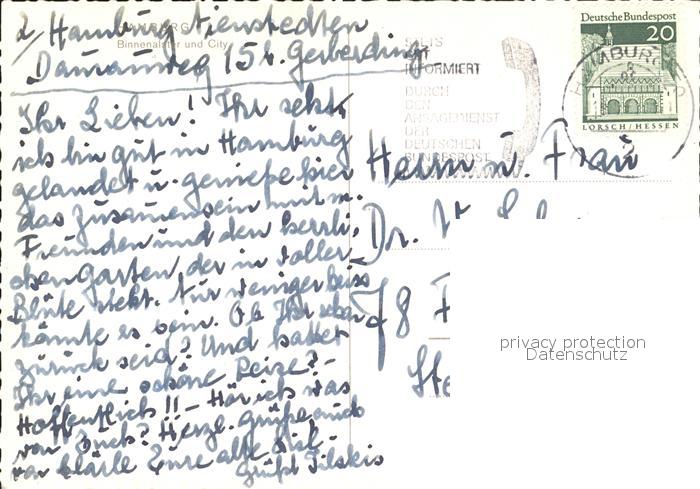 2/ Hamburg Nienstedten
HAMBURG
Binnenalster und City
15 b. Gerberding
Deutsche Bundespost
20
STETS
GUT
INFORMIERT
DURCH
DEN
ANSAGEDIENST
DER
DEUTSCHEN
BUNDESPOST
HAMBURG
LORSCH/HESSEN
Ihr Lieben! Ihr seht,
ich bin gut in Hamburg
gelandet u. genieße hier
das Zusammensein mit m.
Freunden und den herrli-
chen Garten, der in voller
Blüte steht. Nur weniger heiss
könnte es sein. Ob Ihr schon
zurück seid? Und hattet
Ihr eine schöne Reise? -
Hoffentlich!! - Hör ich was
von Euch? Herzl. Grüße auch
von Eure alte
Grüßt
Herrn u. Frau
Dr.
78
privacy protection
Datenschutz